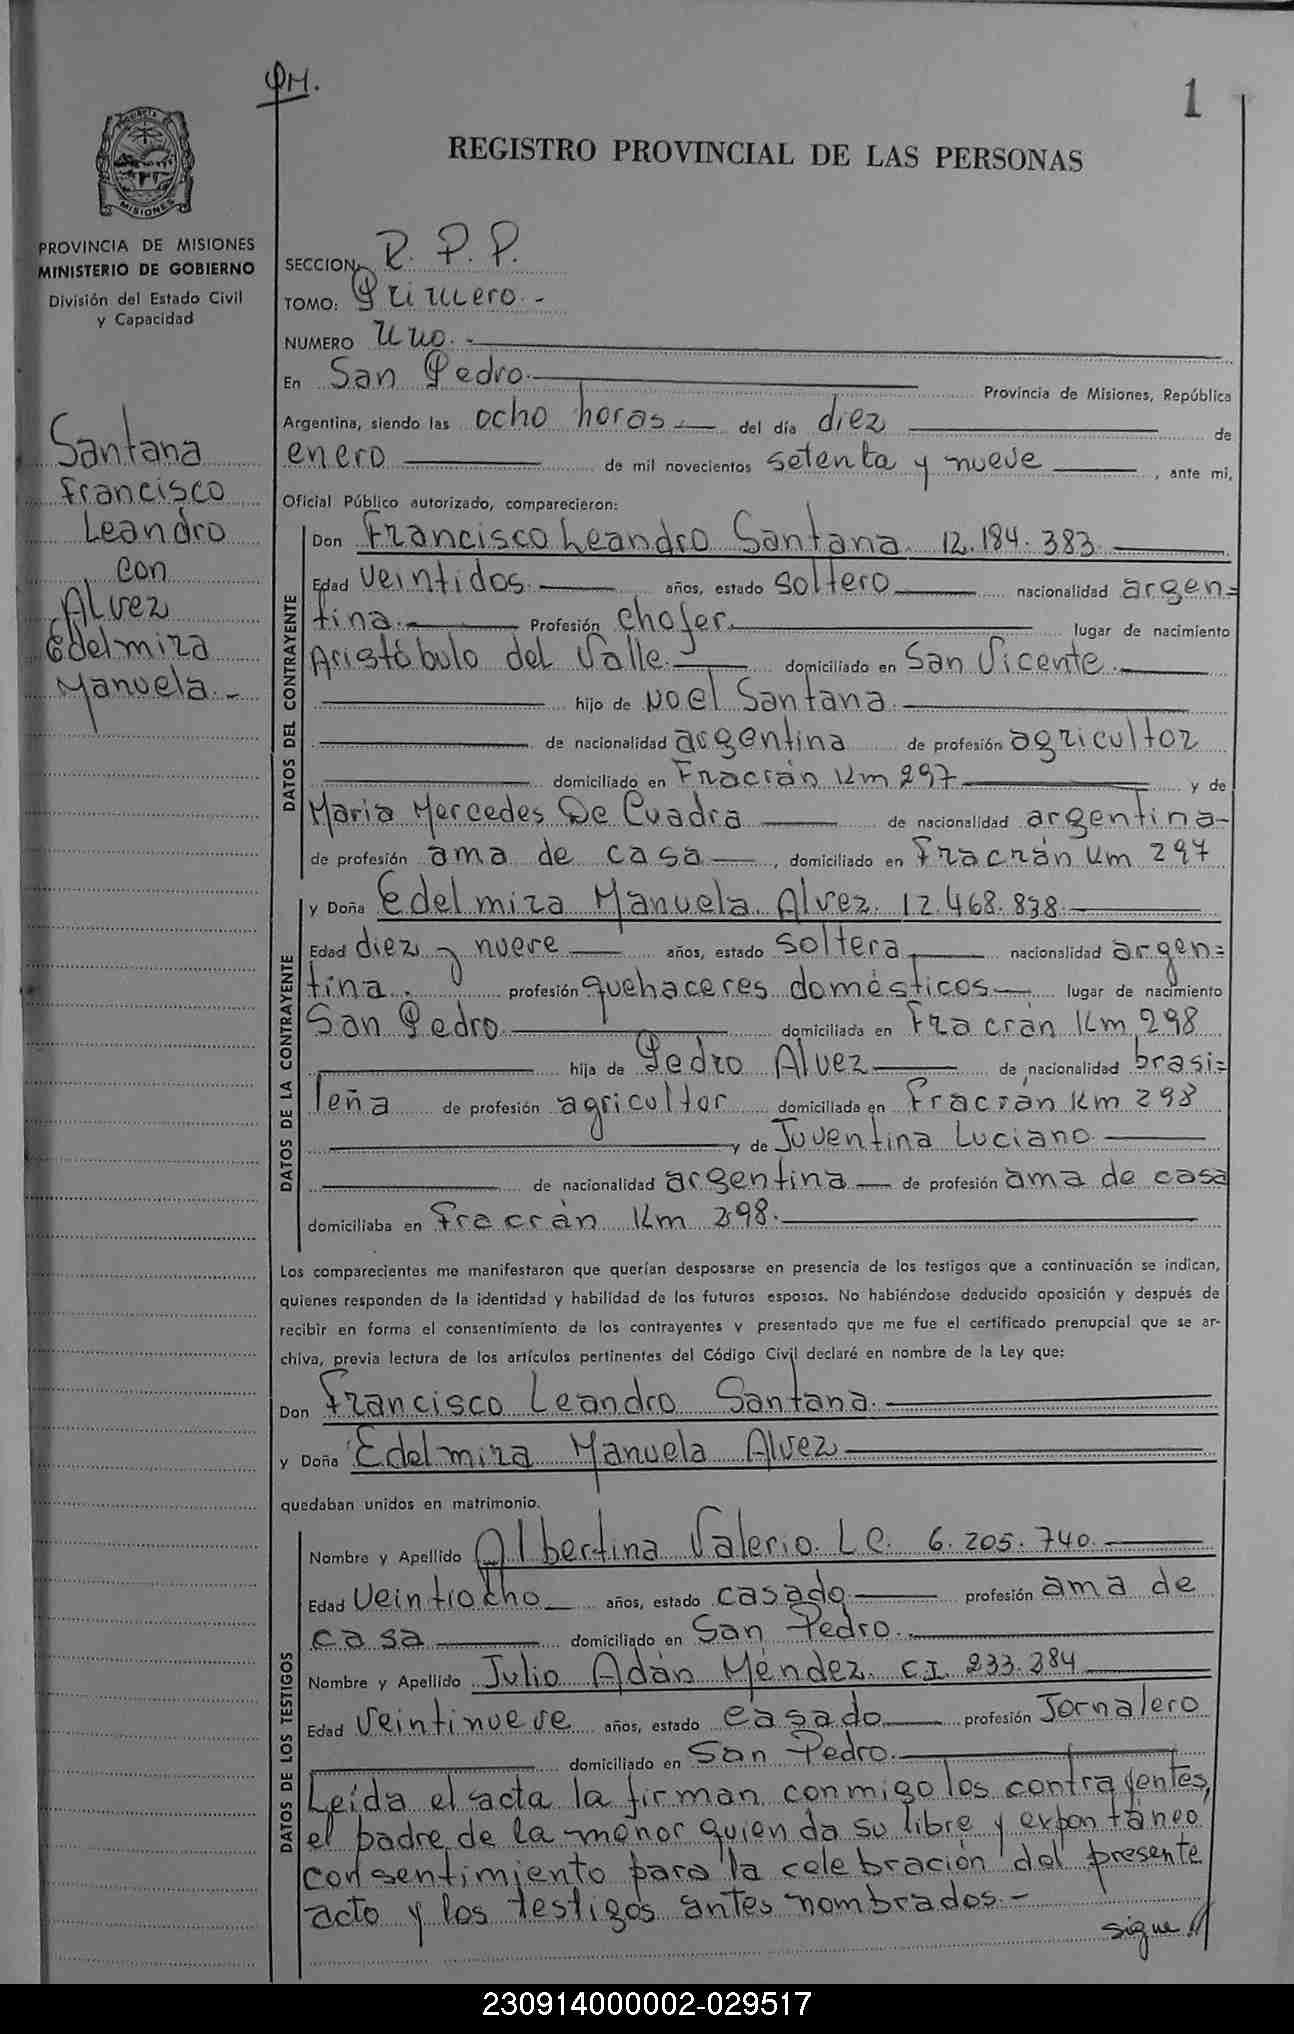 QM.
1
REGISTRO PROVINCIAL DE LAS PERSONAS
MISIONES
PROVINCIA DE MISIONES
MINISTERIO DE GOBIERNO
División del Estado Civil
y Capacidad
Santana
Francisco
Leandro
con
Alvez
Edelmira
Manuela.-
SECCION R. P. P.
TOMO: Primero.-
NUMERO Uno.-
En San Pedro. Provincia de Misiones, República
Argentina, siendo las ocho horas del día diez de
enero de mil novecientos setenta y nueve , ante mi,
Oficial Público autorizado, comparecieron:
DATOS DEL CONTRAYENTE
Don Francisco Leandro Santana. 12.184.383.
Edad veintidos. años, estado soltero nacionalidad argen=
tina. Profesión chofer. lugar de nacimiento
Aristóbulo del Valle. domiciliado en San Vicente.
hijo de Noel Santana.
de nacionalidad argentina de profesión agricultor
domiciliado en Fracrán Km 297 y de
Maria Mercedes De Cuadra de nacionalidad argentina-
de profesión ama de casa , domiciliado en Fracrán Km 297
DATOS DE LA CONTRAYENTE
y Doña Edelmira Manuela Alvez. 12.468.838.
Edad diez y nueve años, estado soltera nacionalidad argen=
tina. profesión quehaceres domésticos lugar de nacimiento
San Pedro. domiciliada en Fracrán Km 298
hija de Pedro Alvez de nacionalidad brasi=
leña de profesión agricultor domiciliada en Fracrán Km 298
y de Juventina Luciano.
de nacionalidad argentina de profesión ama de casa
domiciliaba en Fracrán Km 298.
Los comparecientes me manifestaron que querían desposarse en presencia de los testigos que a continuación se indican,
quienes responden de la identidad y habilidad de los futuros esposos. No habiéndose deducido oposición y después de
recibir en forma el consentimiento de los contrayentes y presentado que me fue el certificado prenupcial que se ar-
chiva, previa lectura de los artículos pertinentes del Código Civil declaré en nombre de la Ley que:
Don Francisco Leandro Santana.
y Doña Edelmira Manuela Alvez
quedaban unidos en matrimonio.
DATOS DE LOS TESTIGOS
Nombre y Apellido Albertina Valerio. L.C. 6.205.740.
Edad veintiocho años, estado casado profesión ama de
casa domiciliado en San Pedro.
Nombre y Apellido Julio Adán Méndez. C.I. 233.384
Edad veintinueve años, estado casado profesión Jornalero
domiciliado en San Pedro.
Leida el acta la firman conmigo los contrayentes,
el padre de la menor quien da su libre y expontáneo
consentimiento para la celebración del presente
acto y los testigos antes nombrados.-
sigue //
230914000002-029517